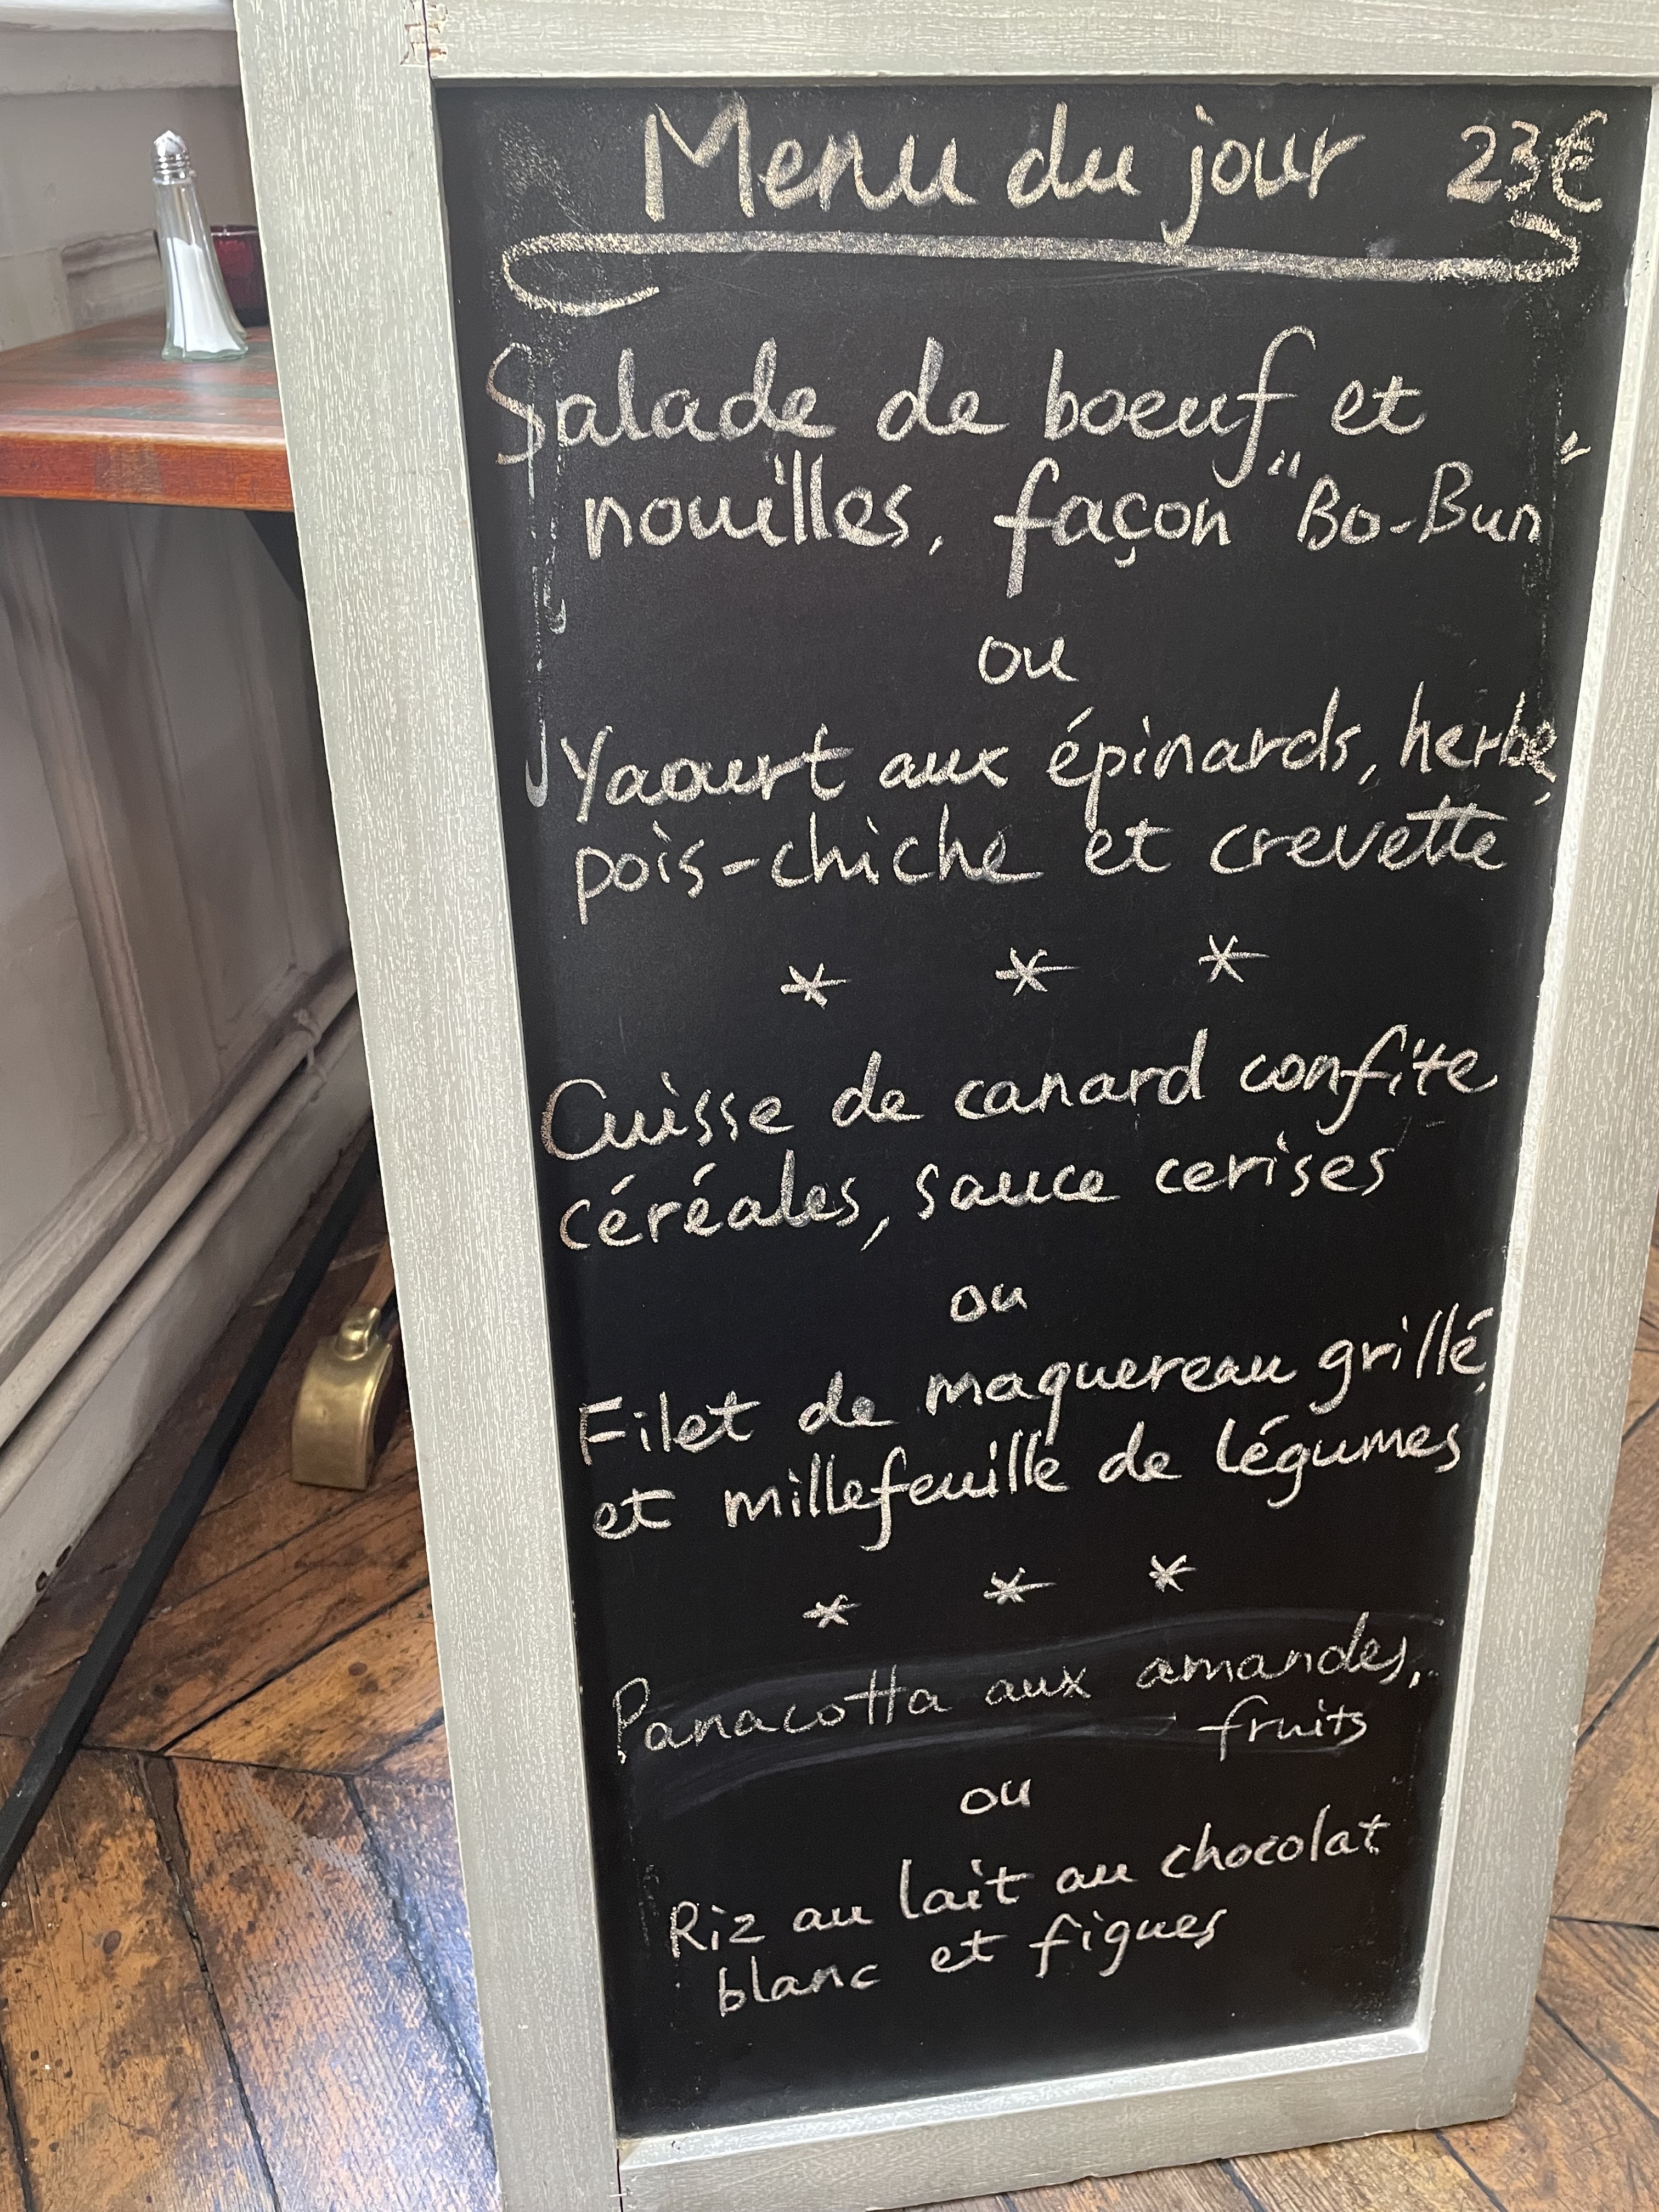 Menu du jour 23€
Salade de boeuf et
nouilles, façon "Bo-Bun"
ou
Yaourt aux épinards, herbe,
pois-chiche et crevette
* * *
Cuisse de canard confite
céréales, sauce cerises
ou
Filet de maquereau grillé,
et millefeuille de légumes
* * *
Panacotta aux amandes,
fruits
ou
Riz au lait au chocolat
blanc et figues